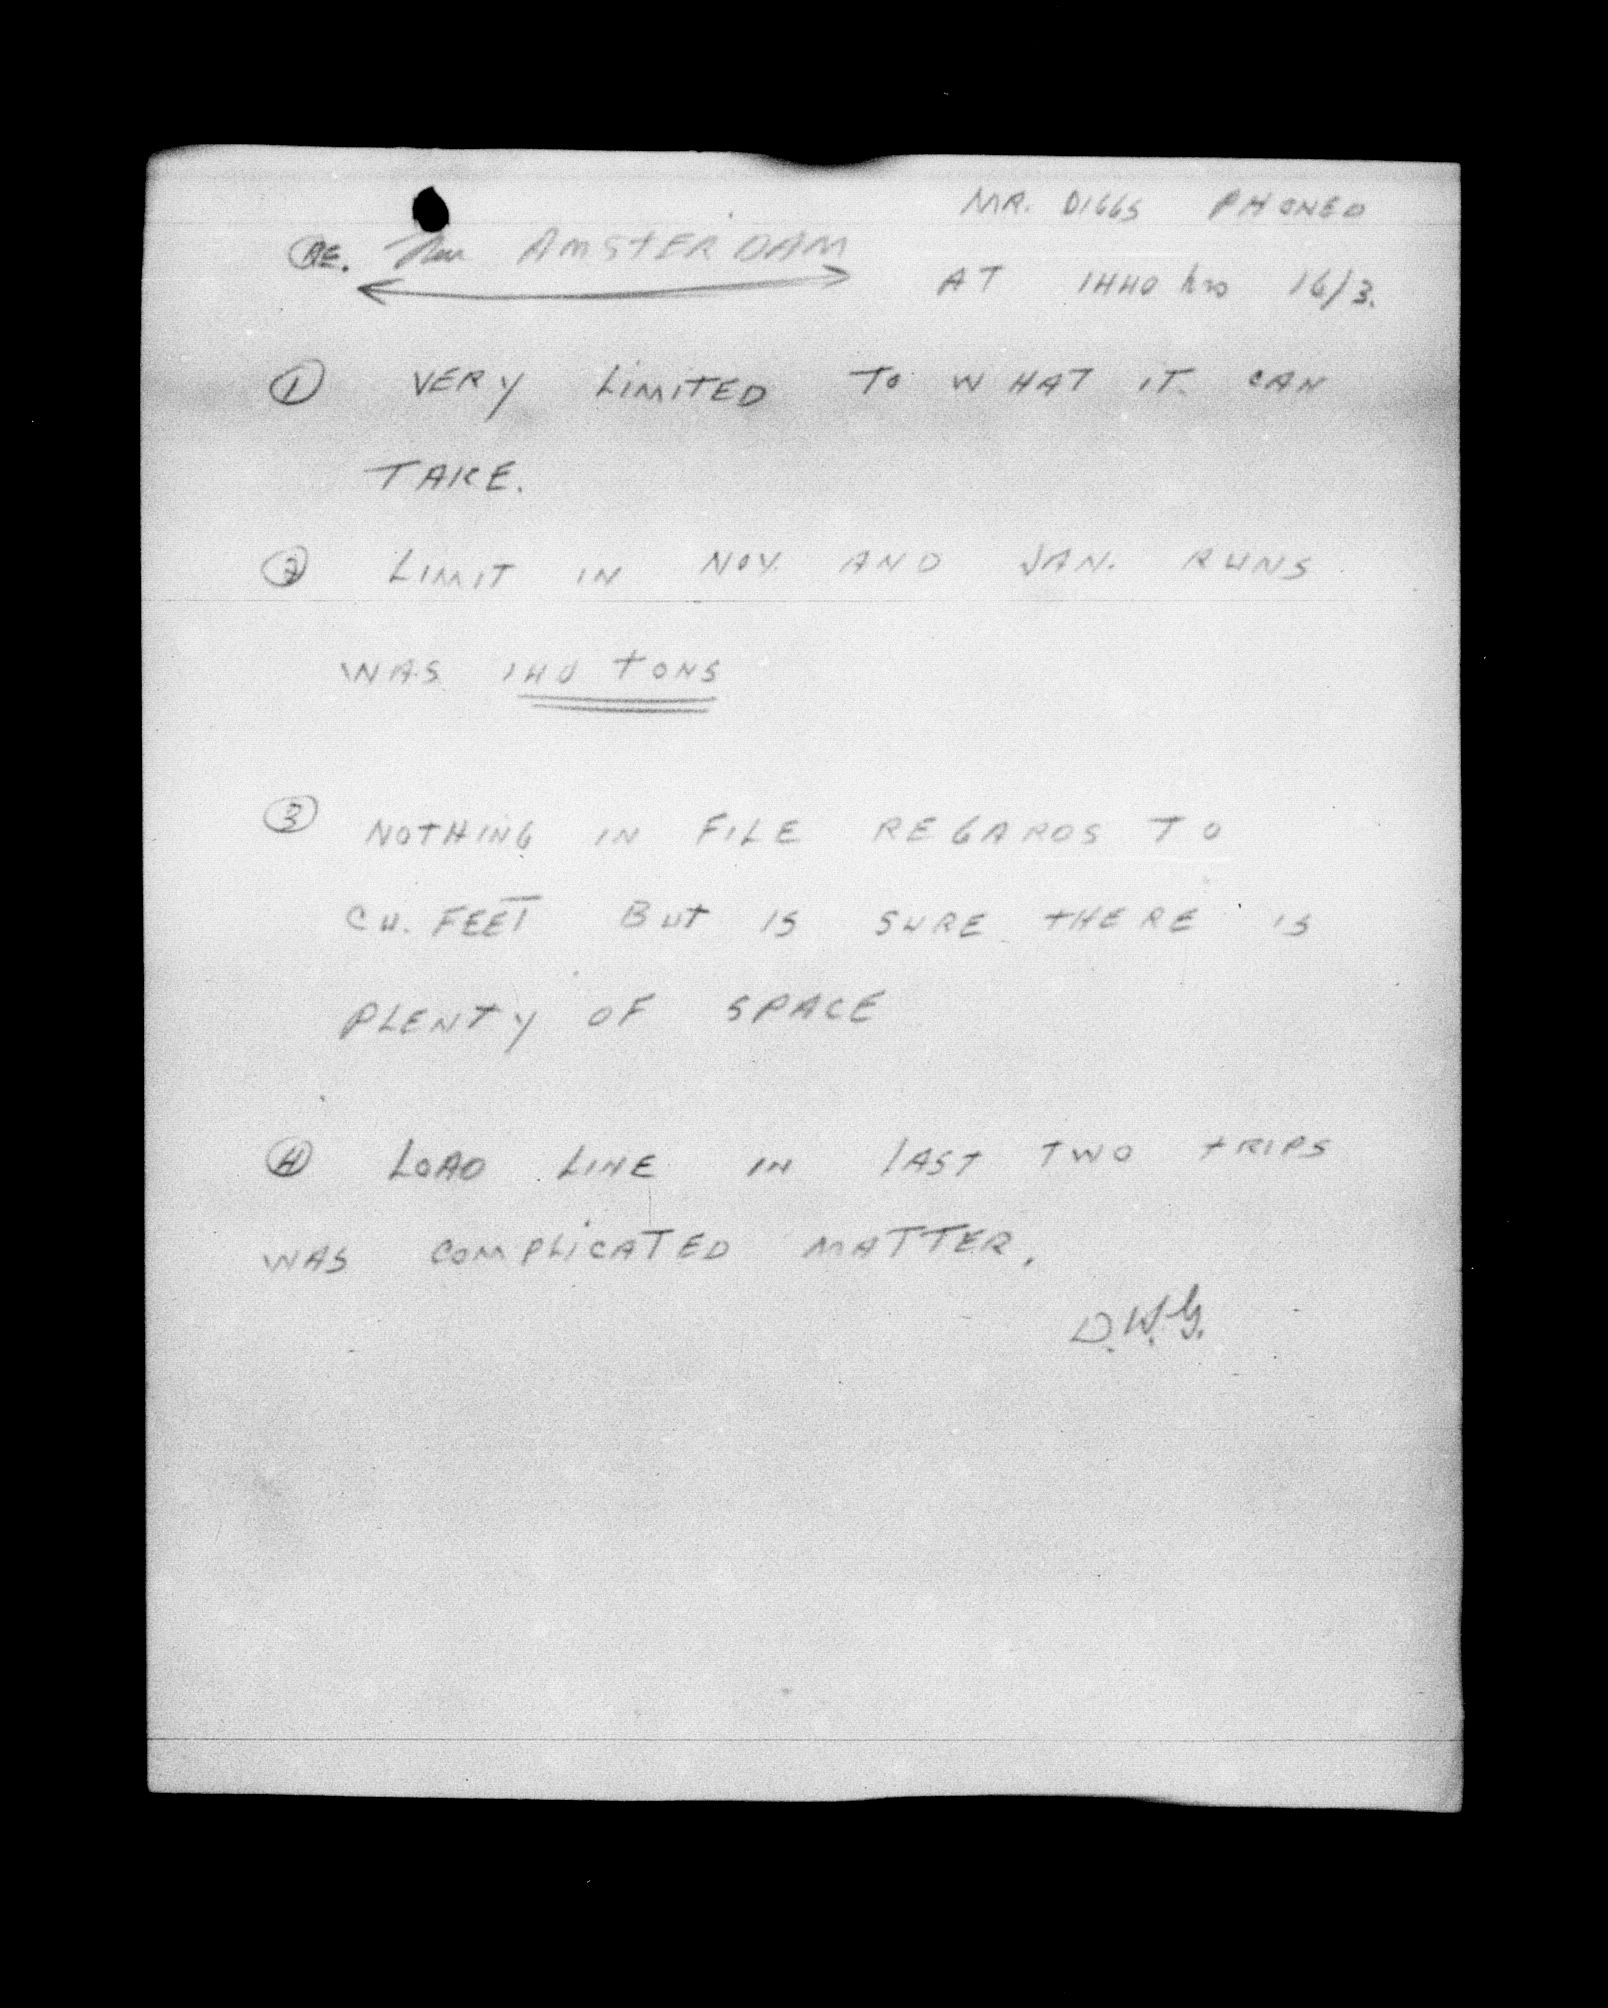 MR. DIGGS PHONED
RE. AMSTERDAM
AT 1440 hrs 16/3.
① VERY LIMITED TO WHAT IT CAN
TAKE.
② LIMIT IN NOV. AND JAN. RUNS
WAS 140 TONS
③ NOTHING IN FILE REGARDS TO
CU. FEET BUT IS SURE THERE IS
PLENTY OF SPACE
④ LOAD LINE IN LAST TWO TRIPS
WAS COMPLICATED MATTER.
D.W.G.